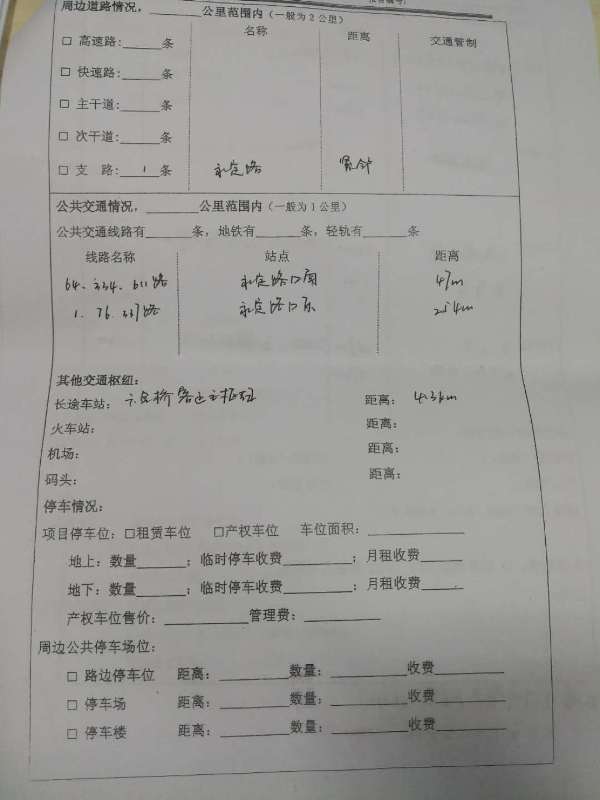 周边道路情况，________公里范围内（一般为2公里）
名称 距离 交通管制
□ 高速路：______条
□ 快速路：______条
□ 主干道：______条
□ 次干道：______条
□ 支 路：1条 永定路 紧邻
公共交通情况，________公里范围内（一般为1公里）
公共交通线路有______条，地铁有______条，轻轨有______条
线路名称 站点 距离
64、334、611路 永定路口南 47m
1、76、337路 永定路口东 254m
其他交通枢纽：
长途车站：六里桥客运主枢纽 距离：4.3km
火车站： 距离：
机场： 距离：
码头： 距离：
停车情况：
项目停车位：□租赁车位 □产权车位 车位面积：______________
地上：数量_______；临时停车收费__________；月租收费______
地下：数量_______；临时停车收费__________；月租收费______
产权车位售价：____________管理费：___________
周边公共停车场位：
□ 路边停车位 距离：__________数量：___________收费__________
□ 停车场 距离：__________数量：___________收费__________
□ 停车楼 距离：__________数量：___________收费__________